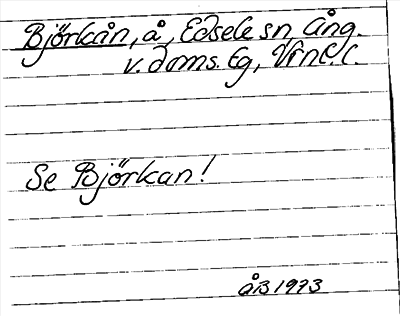 Björkån, å, Edsele sn, Ång.
v. doms. Eg, Vrnl. l.
Se Björkan!
ÅB 1973